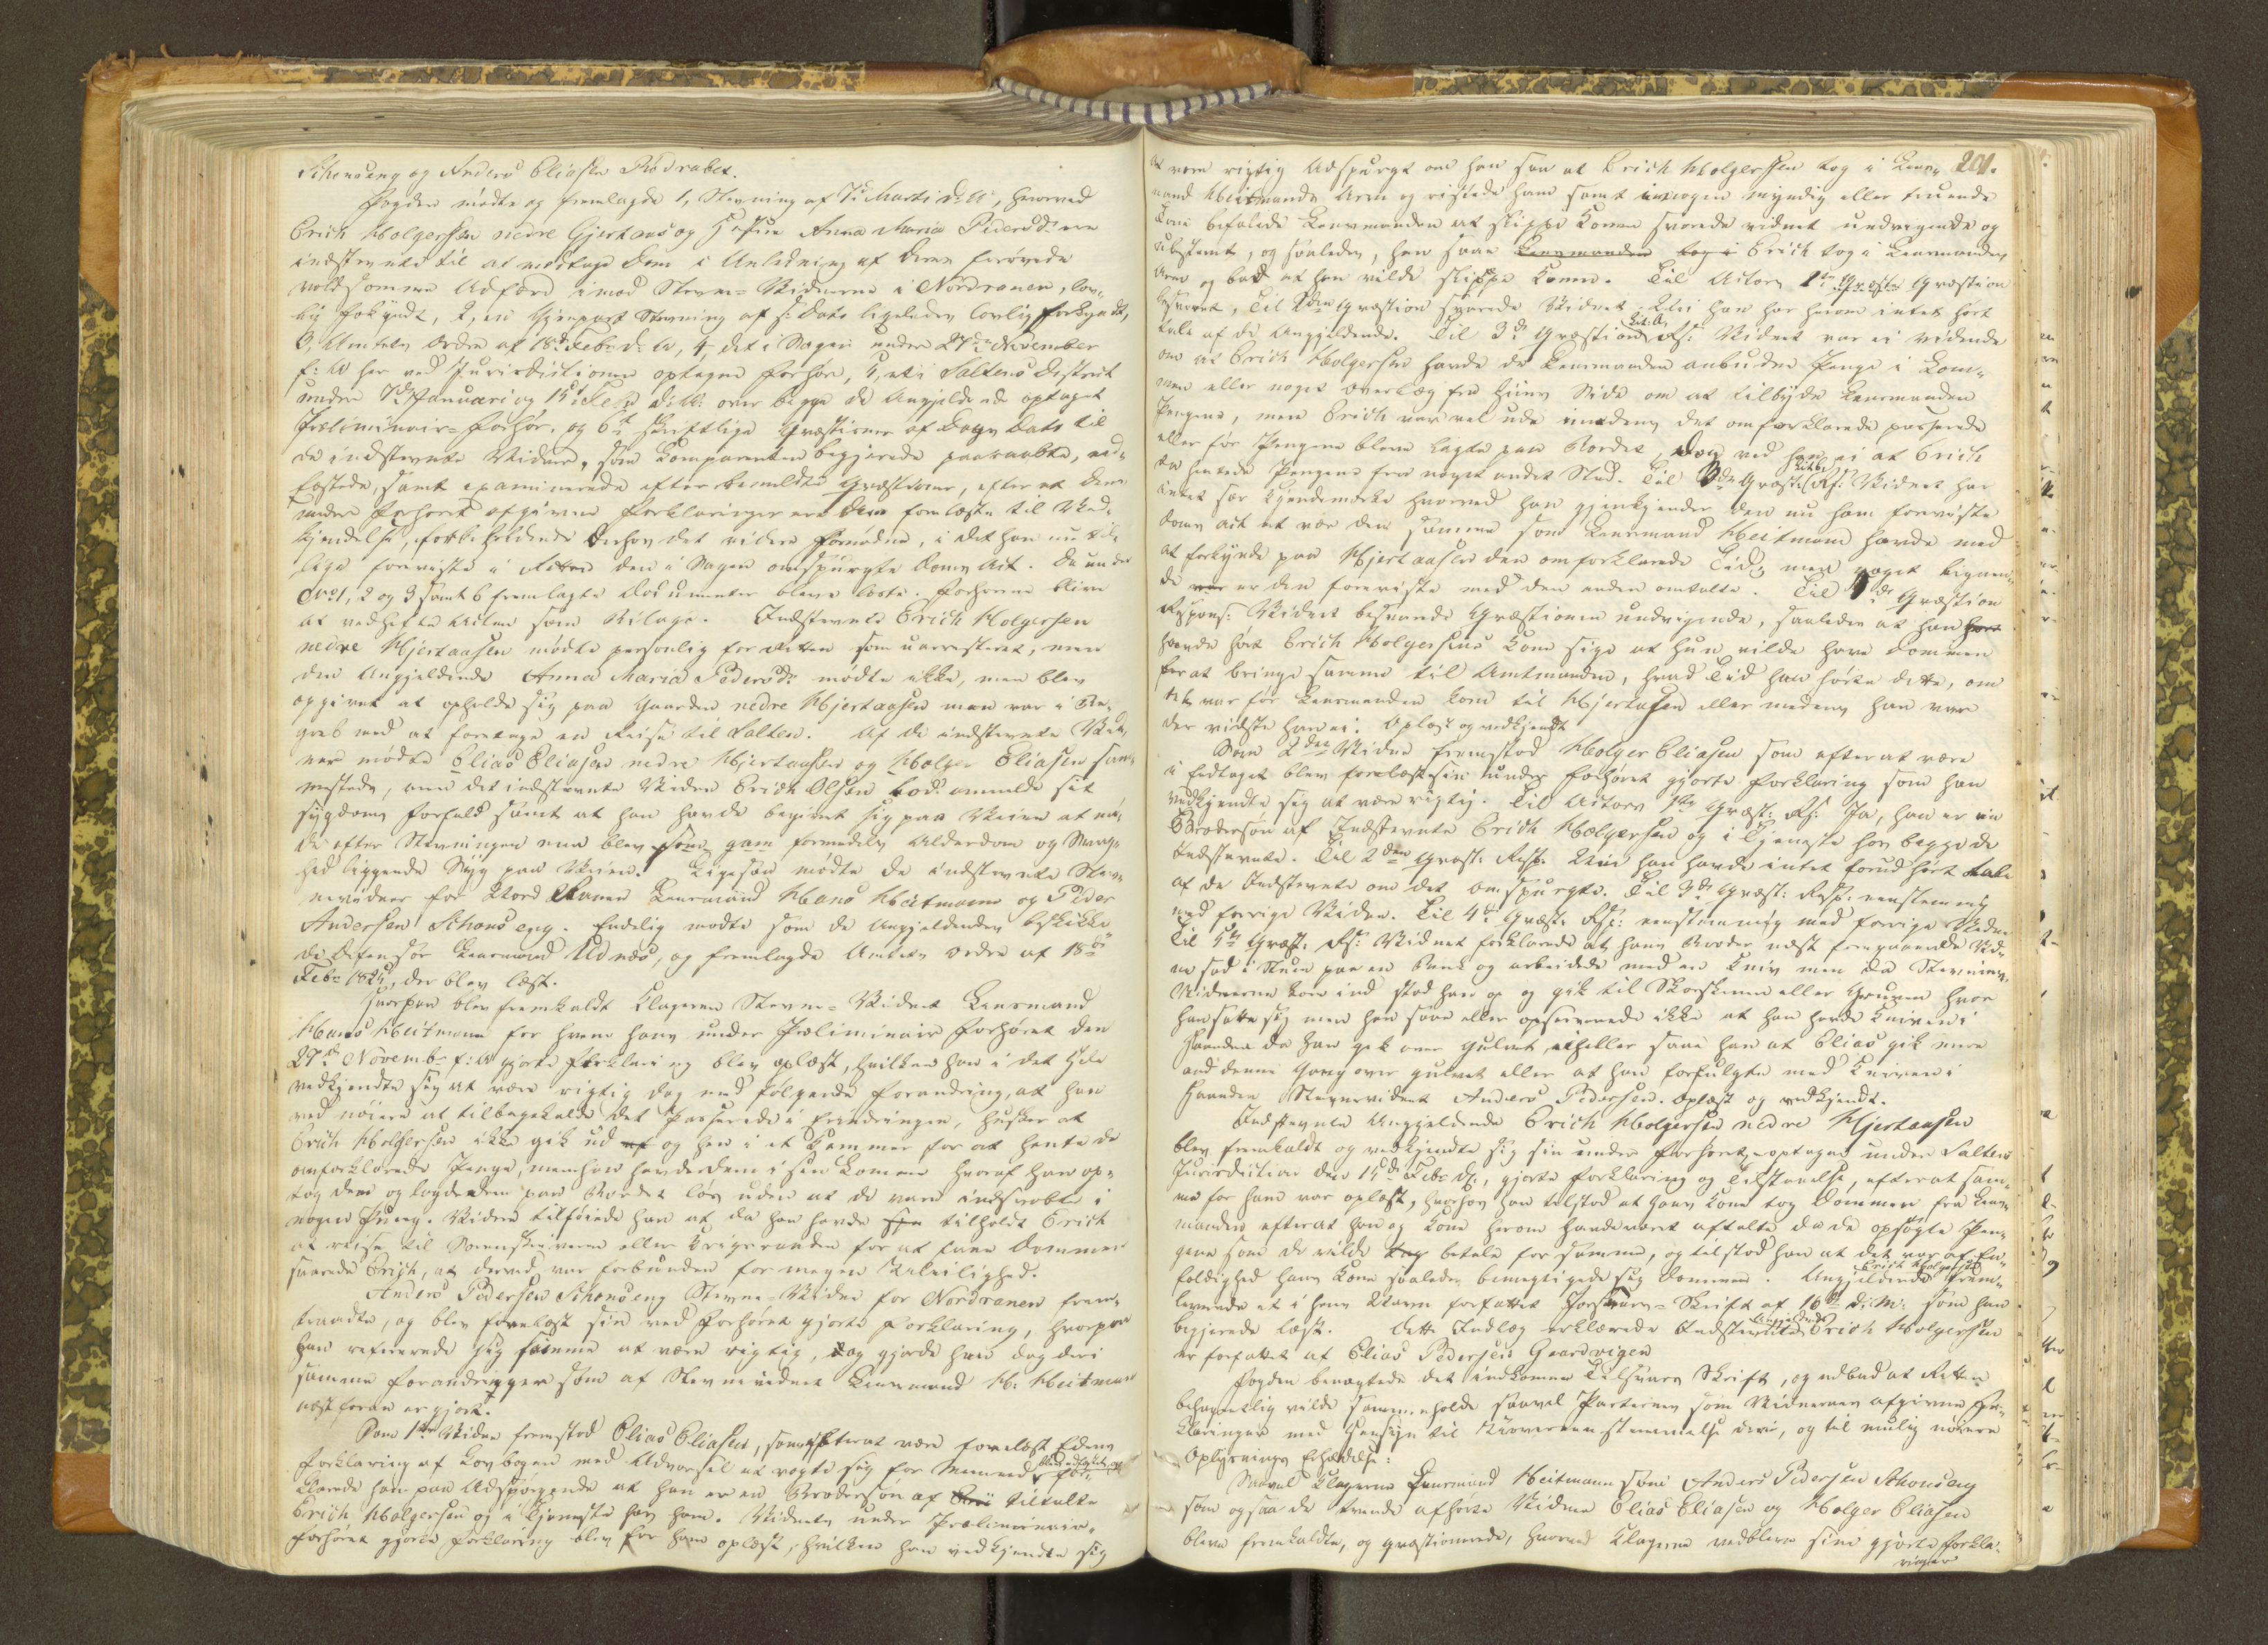 Schonseng og Anders Eliasen Rödrabet.
Fogden mødte og fremlagde 1, Stevning af 7d Marti d: A:, hvorved
Erich Holgersen nedre Hjertaas og Hustrue Anna Maria Pedersd: ere
indstevnte til at modtage Dom i Anledning af deres forøvede
voldsomme Adfærd imod Stevne-Vidnerne i Nordranen, lov-
lig forkyndt, 2, en Stevning af s: Dato ligeledes lovlig forkyndt,
3, Amtets Ordre af 18d Febr d: A, 4, det i Sagen under 27de November
f: A her ved Jurisdictionen optagne Forhør, 5, et i Saltens District
under 7d Januari og 15d Febr over begge de Angjeldende optaget
Præliminair-Forhør, og 6t skriftlige Qvæstioner af Dags Dato til
de indstevnte Vidner, som Comparenten begjærede paaraabte, ed-
fæstede, samt examinerede efter bemeldte Qvæstioner, efter at deres
under Forhøret afgivne Forklaringer ere dem forelæste til Ved-
kjendelse, forbeholdende derhos det videre fornødne, i det han
foreviste i Retten den i Sagen omspurgte Doms Act. De under
No 1, 2 og 3 samt 6 fremlagte Documenter bleve læste. Forhørene blive
at vedhefte Acten som Bilage. Indstevnte Erich Holgersen
nedre Hjertaasen mødte personlig for Retten som uarresteret, men
den Angjeldende Anna Maria Pedersd: mødte ikke, men blev
opgivet at opholde sig paa Gaarden nedre Hjertaasen men var i Be-
greb med at foretage en Reise til Salten. Af de indstevnte Vid-
ner mødte Elias Eliasen nedre Hjertaasen og Holger Eliasen sam-
mesteds, men det indstevnte Vidne Erich Olsen lod anmelde sit
Sygdoms Forfald samt at han havde begivet sig paa Veien at mø-
de efter Stevningen men blev formedelst Alderdom og Svag-
hed liggende syg paa Veien. Ligesaa mødte de indstevnte Stev-
nevidner for Nord Ranen Lensmand Hans Heitmann og Peder
Andersen Schonseng. Endelig mødte som de Angjeldendes beskikke-
de Defensor Lensmand Udnæs, og fremlagde Amtets Ordre af 18de
Febr 1825, der blev læst.
Hvorpaa blev fremkaldt Klageren Stevne-Vidnet Lensmand
Hans Heitmann for hvem hans under Præliminair Forhøret den
27d Novembr f: A gjorte Forklaring blev oplæst, hvilken han i det Hele
vedkjendte sig at være rigtig dog med følgende Forandring, at han
ved nøiere at tilbagekalde det Passerede i Erindringen, husker at
Erich Holgersen ikke gik ud af og hen i et Kammer for at hente de
omforklarede Penge, men han havde dem i sin Lomme hvoraf han op-
tog dem og lagde dem paa Bordet løs uden at de vare indsvøbte i
nogen Pung. Videre tilføiede han at da han havde tilholdt Erich
at reise til Sorenskriveren eller Krigsraaden for at faae Dommen
svarede Erich, at derved var forbunden for megen Uleilighed.
Anders Pedersen Schonseng Stevne-Vidne for Nordranen frem-
traadte, og blev forelæst sin ved Forhøret gjorte Forklaring, hvorpaa
han refererede sig samme at være rigtig, dog gjorde han dog deri
samme Forandringer som af Stevnevidnet Lensmand H: Heitmann
næst foran er gjort.
Som 1te Vidne fremstod Elias Eliasen, som efterat være forelæst Edens
Forklaring af Lovbogen med Advarsel at vogte sig for Meeneed, for-
klarede han paa Adspørgende at han er en Brodersøn af tiltalte
Erich Holgersen og i Tjeneste hos ham. Vidnets under Præliminair-
Forhøret gjorte Forklaring blev for ham oplæst, hvilken han vedkjendte sig
201.
at være rigtig Adspurgt om han saa at Erich Holgersen tog i Lens-
mand Heitmanns Arm og ristede ham samt i nogen myndig eller truende
Tone befalede Lensmanden at slippe Konen svarede vidnet undvigende og
ubestemt, og saaledes, han saae Lensmanden tog i Erich tog i Lensmandens
Arm og bad at han vilde slippe Konen. Til Actors 1te Qvæstion
besvaret, Til 2den Qvæstion svarede Vidnet: Nei han har herom intet hørt
tale af de Angjeldende. Til 3d Qvæstion Lit: A, Rs: Vidnet var ei vidende
om at Erich Holgersen havde de Lensmanden anbudne Penge i Lom-
men eller noget Overlæg fra hans Side om at tilbyde Lensmanden
Pengene, men Erich var vel ude imedens det omforklarede passerede
eller før Pengene bleve lagte paa Bordet, dog ved han ei at Erich
da hentede Pengene fra noget andet Sted. Til 3de Qvæst: Lit: b, Rs: Vidnet har
intet sær Kjendemærke hvorved han gjenkjender den nu ham foreviste
Doms Act at være den samme som Lensmand Heitmann havde med
at forkynde paa Hjertaasen den omforklarede Tid, men noget lignen-
de er den foreviste med den anden omtalte. Til 4de Qvæstion
Respons: Vidnet besvarede Qvæstionen undvigende, saaledes at han
havde hørt Erich Holgersens Kone sige at hun vilde have Dommen
for at bringe samme til Amtmanden, hvad Tid han hørte dette, om
det var før Lensmanden kom til Hjertaasen eller medens han var
der vidste han ei. Oplæst og vedkjendt
Som 2den Vidne fremstod Holger Eliasen som efter at være
i Eedtaget blev forelæst sin under Forhøret gjorte Forklaring som han
vedkjendte sig at være rigtig. Til Actors 1te Qvæst: Rs: Ja, han er en
Brodersøn af Indstevnte Erich Holgersen og i Tjeneste hos begge de
Indstevnte. Til 2den Qvæst: Resp: Nei han havde intet forud hørt tale
af de Indstevnte om det omspurgte. Til 3de Qvæst: Resp: eenstemmig
med forrige Vidne. Til 4de Qvæst: Rs: eenstemmig med forrige Vidne
Til 5te Qvæst: Rs: Vidnet forklarede at hans Broder næst foregaaende Vid-
ne sad i Stuen paa en Bænk og arbeidede med en Kniv men da Stevnings-
Vidnerne kom ind stod han op og gik til Skorsteenen eller Gruven hvor
han satte sig men han saae eller observerede ikke at han havde Kniven i
Haanden da han gik over Gulvet, eiheller saae han at Elias gik mere
end denne Gang over Gulvet eller at han forfulgte med Kniven i
Haanden Stevnevidnet Anders Pedersen. Oplæst og vedkjendt.
Indstevnte Angjeldende Erich Holgersen nedre Hjertaasen
blev fremkaldt og vedkjendte sig sin under Forhøret optagen under Saltens
Jurisdiction den 15de Febr d:, gjorte Forklaring og Tilstaaelse, efterat sam-
me for ham var oplæst, hvorhos han tilstod at hans Kone tog Dommen fra Lens-
manden efterat han og Kone herom havde været aftalte da de opsøgte Pen-
gene som de vilde betale for samme, og tilstod han at det var af En-
foldighed hans Kone saaledes bemægtigede sig Dommen. Angjeldende Erich Holgersen frem-
leverede et i hans Navn forfattet Forsvars-Skrift af 16d d: M: som han
begjerede læst. Dette Indlæg erklærede Indstevnte Angjeldende Erich Holgersen
er forfattet af Elias Pedersen Gaardvigen
Fogden benægtede det indkomne Tilsvars Skrift, og udbad at Retten
behageligt vilde sammenholde saavel Parternes som Vidnernes afgivne For-
klaringer med Hensyn til Uovereensstemmelse deri, og til mulig nøiere
Oplysnings Erholdelse:
Saavel Klagerne Lensmand Heitmann som Anders Pedersen Schonseng
som ogsaa de tvende afhørte Vidner Elias Eliasen og Holger Eliasen
bleve fremkaldte, og qvæstionerede, hvorved Klagerne vedbleve sine gjorte Forkla-
ringer